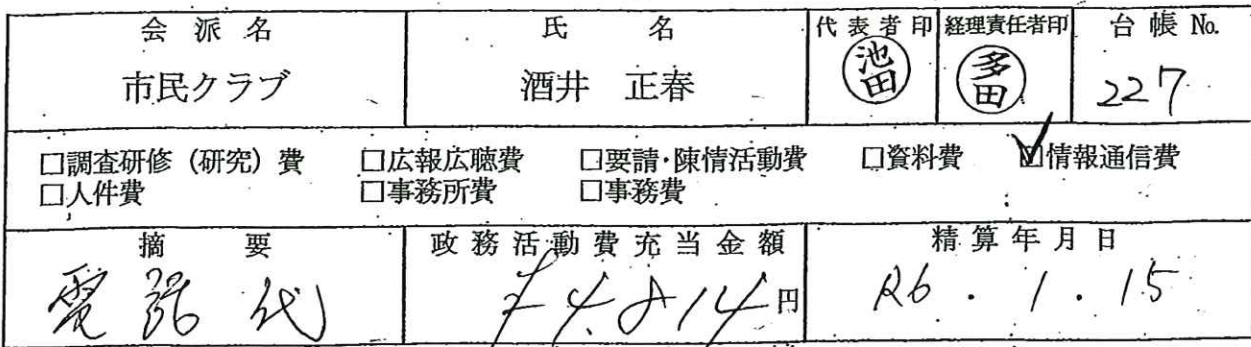 会派名 氏名 代表者印 経理責任者印 台帳 No.
市民クラブ 酒井 正春 池田 多田 227
□調査研修(研究)費 □広報広聴費 □要請・陳情活動費 □資料費 ☑情報通信費
□人件費 □事務所費 □事務費
摘要 政務活動費充当金額 精算年月日
電話代 ¥4,814円 R6.1.15